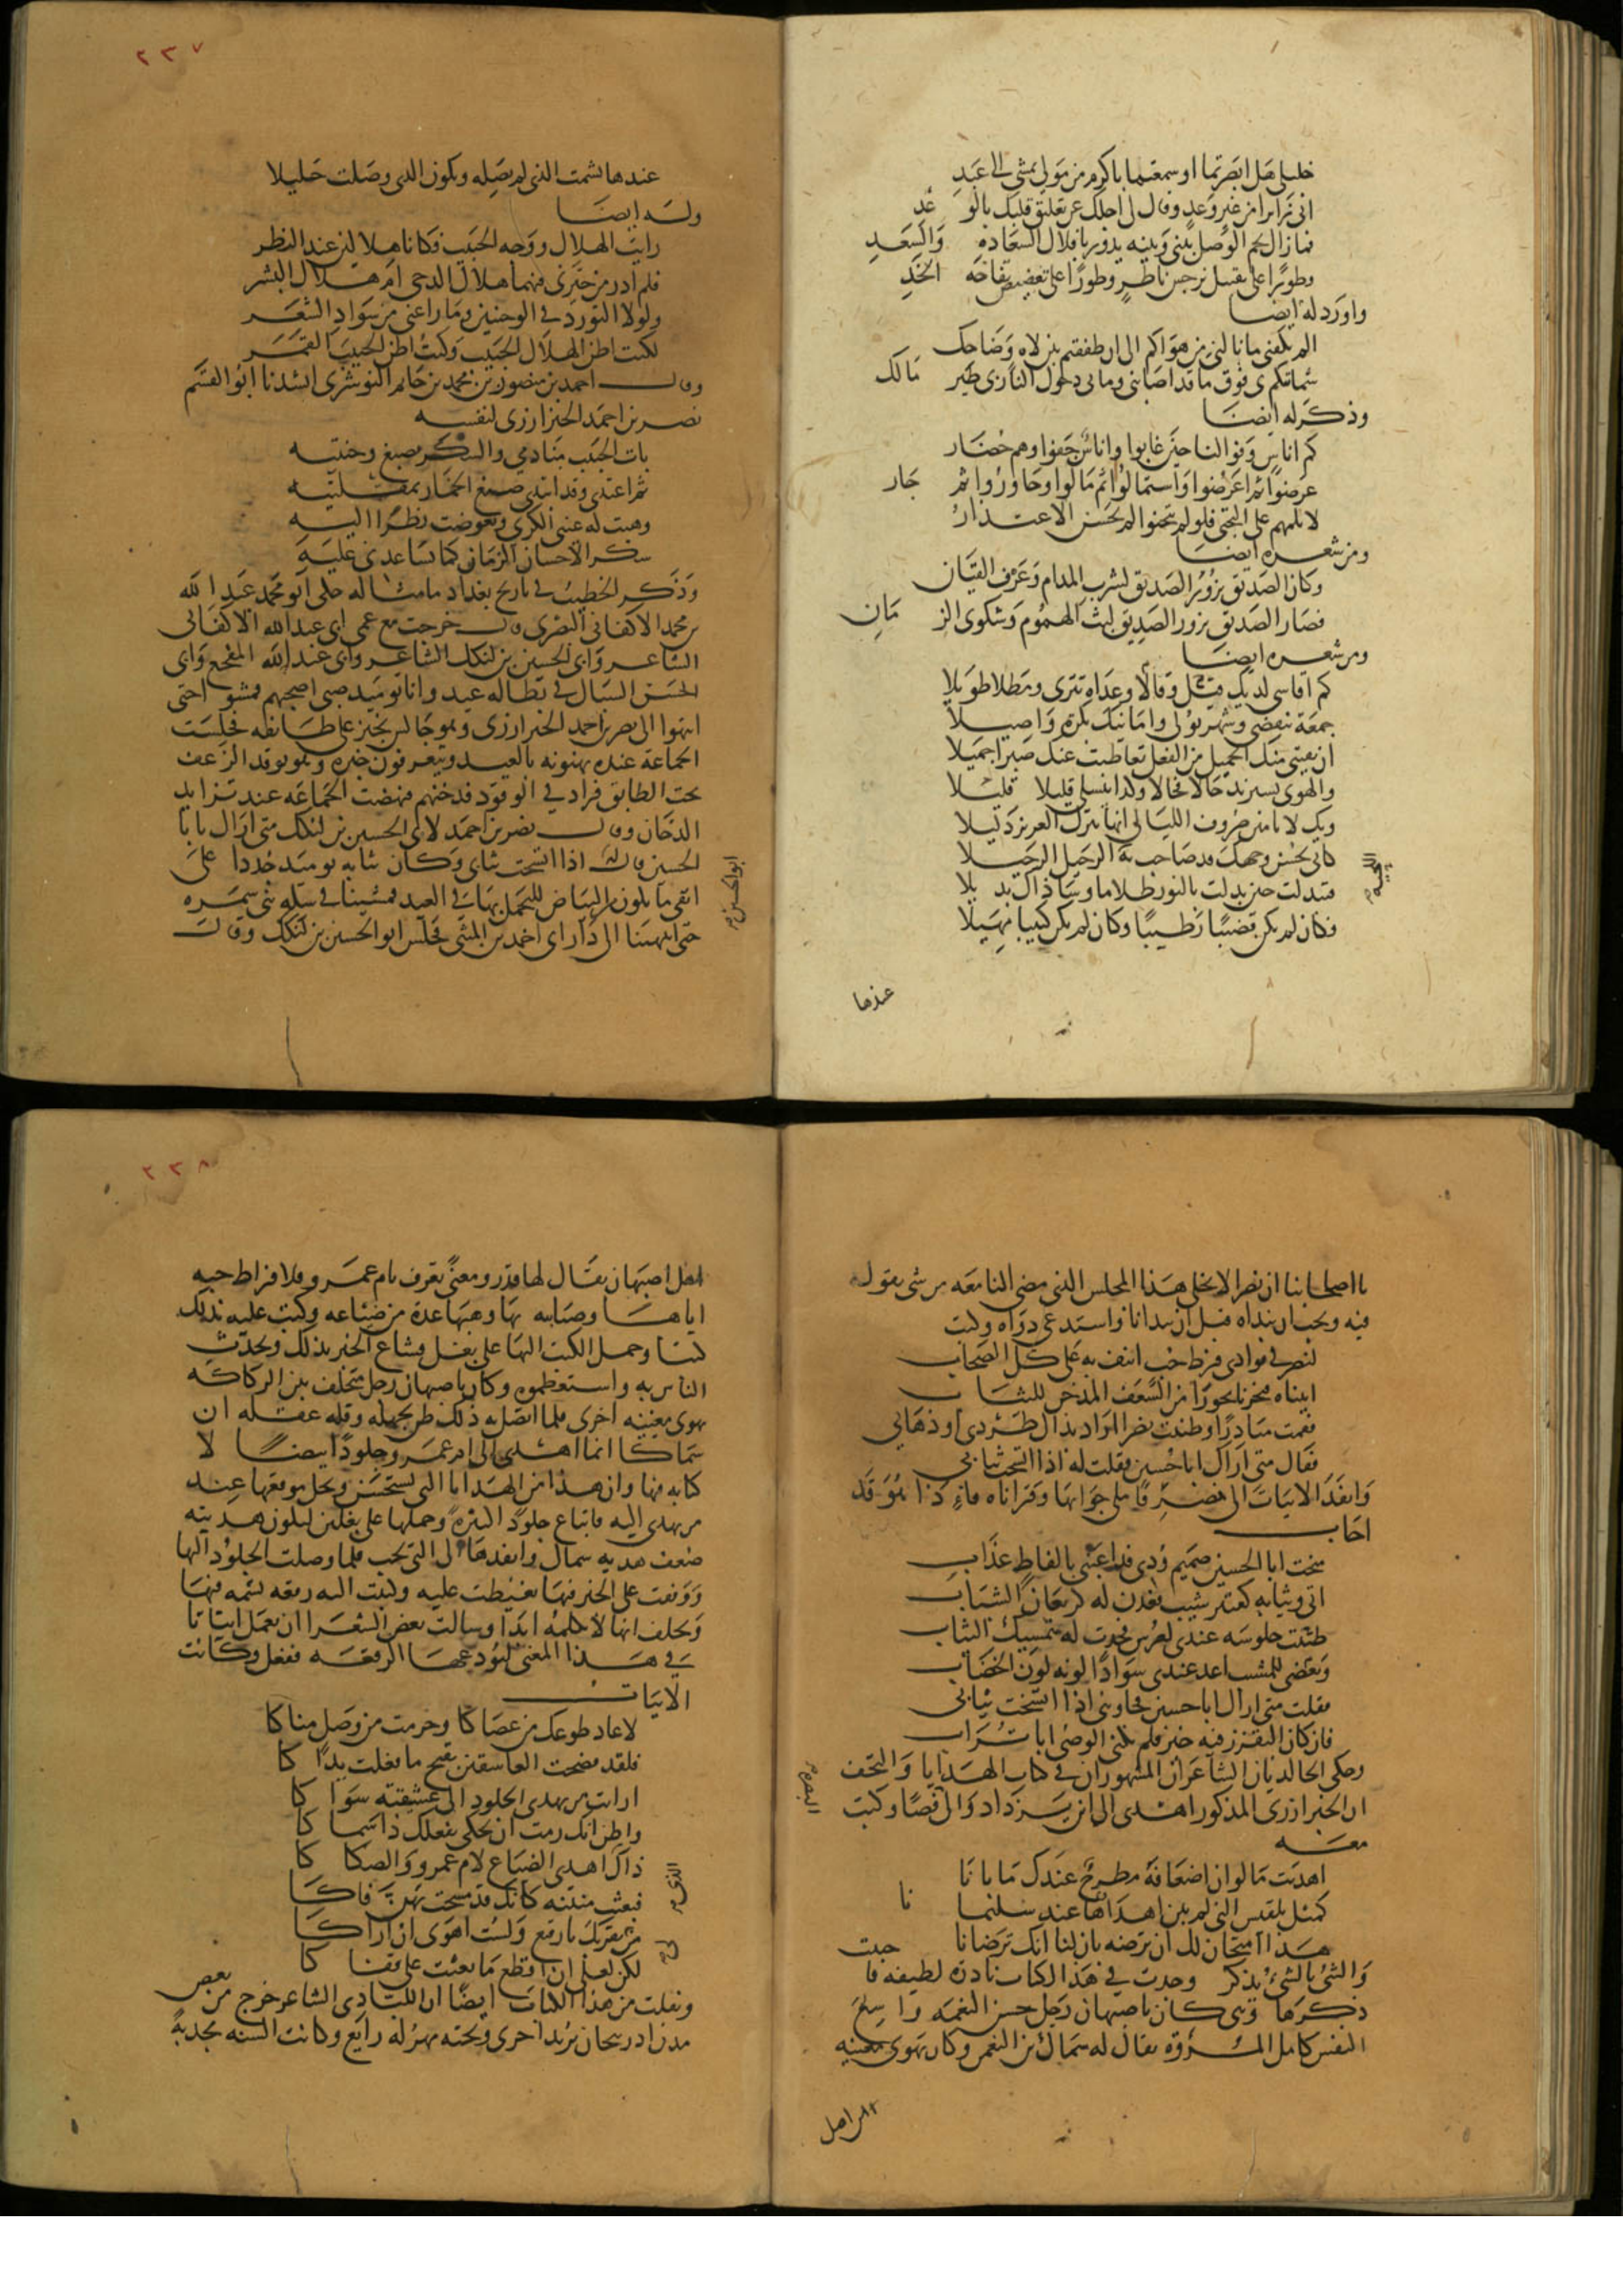 خليلي هل ابصرتما او سمعتما باكرم من مولى تمشى الى عبد
اتى زائرا من غير وعد وقال لي اجلك عن تعليق قلبك بالوعد
فما زال نجم الوصل بيني وبينه يدور بافلاك السعادة والسعد
وطورا على تقبيل نرجس ناظر وطورا على تعضيض تفاحة الخد
واورد له ايضا
الم يكفني ما نالني من هواكم الى ان طفقتم بين لاه وضاحك
شماتتكم بي فوق ما قد اصابني وما بي دخول النار بي طنز مالك
وذكر له ايضا
كم اناس وفوا لنا حين غابوا واناس جفوا وهم حضار
عرضوا ثم اعرضوا واستمالوا ثم مالوا وجاوروا ثم جار
لا تلمهم على التجني فلو لم يتجنوا لم يحسن الاعتذار
ومن شعره ايضا
وكان الصديق يزور الصديق لشرب المدام وعزف القيان
فصار الصديق يزور الصديق لبث الهموم وشكوى الزمان
ومن شعره ايضا
كم اقاسي لديك قيلا وقالا وعداة تترى ومطلا طويلا
جمعة تنقضي وشهر يولي وامانيك بكرة واصيلا
ان يفتني منك الجميل من الفعل تعاطيت عنك صبرا جميلا
والهوى يستزيد حالا فحالا وكذا ينسلي قليلا قليلا
ويك لا تامنن صروف الليالي انها تترك العزيز ذليلا
كاني بحسن وجهك قد صاحت به الرحيل الرحيلا
فتبدلت حين بدلت بالنور ظلاما وساء ذاك بديلا
فكان لم يكن قضيبا رطيبا وكان لم يكن كثيبا مهيلا
عندها
٢٣٧
عندها يشمت الذي لم يصله ويكون الذي وصلت خليلا
وله ايضا
رايت الهلال ووجه الحبيب فكانا هلالين عند النظر
فلم ادر من حيرتي فيهما هلال الدجى ام هلال البشر
ولولا التورد في الوجنتين وما راعني من سواد الشعر
لكنت اظن الهلال الحبيب وكنت اظن الحبيب القمر
وقال احمد بن منصور بن محمد بن حاتم النوشري انشدنا ابو القسم
نصر بن احمد الخبزارزي لنفسه
بات الحبيب منادمي والسكر يصبغ وجنتيه
ثم اغتدى وقد ابتدى صبغ الخمار بمقلتيه
وهبت له عيني الكرى وتعوضت نظرا اليه
شكرا لاحسان الزمان كما تساعدني عليه
وذكر الخطيب في تاريخ بغداد ما مثاله حكى ابو محمد عبد الله
بن محمد الاكفاني البصري قال خرجت مع عمي ابي عبد الله الاكفاني
الشاعر وابي الحسين بن لنكك الشاعر وابي عبد الله المفجع وابي
الحسن السمال في بطالة عيد وانا يومئذ صبي اصحبهم فمشوا حتى
انتهوا الى نصر بن احمد الخبزارزي وهو جالس يخبز على طابقه فجلست
الجماعة عنده يهنونه بالعيد ويتعرفون خبره وهو يوقد السعف
تحت الطابق فزاد في الوقود فدخنهم فنهضت الجماعة عند تزايد
الدخان وقال نصر بن احمد لابي الحسين بن لنكك متى اراك يا با
الحسين قال له ابو الحسين اذا اتسخت ثيابي وكانت ثيابه يومئذ جددا على
انقى ما يكون من البياض للتجمل بها في العيد فمشينا في سكة بني سمرة
حتى انتهينا الى دار ابي احمد بن المثنى فجلس ابو الحسين بن لنكك وقال
يا اصحابنا ان نصرا لا يخلي هذا المجلس الذي مضى لنا معه من شي يقول
فيه ويجب ان نبداه قبل ان يبدانا واستدعى دواة وكتب
لنصر في فؤادي فرط حب انيف به على كل الصحاب
اتيناه فبخرنا بخورا من السعف المدخن للثياب
فقمت مبادرا وظننت نصرا اراد بذاك طردي او ذهابي
فقال متى اراك ابا حسين فقلت له اذا اتسخت ثيابي
وانفذ الابيات الى نصر فاملى جوابها وقراناه فاذا هو قد
اجاب
منحت ابا الحسين صميم ودي فداعبني بالفاظ عذاب
اتى وثيابه كقتير شيب فعدن له كريعان الشباب
ظننت جلوسه عندي لعرس فجدت له بتمسيك الثياب
وبغضي للمشيب اعد عندي سوادا لونه لون الخضاب
فقلت متى اراك ابا حسين فجاوبني اذا اتسخت ثيابي
فان كان التقزز فيه خير فلم يكنى الوصي ابا تراب
وحكى الخالديان الشاعران المشهوران في كتاب الهدايا والتحف
ان الخبزارزي المذكور اهدى الى ابن يزداد والي البصرة فصا وكتب
معه
اهديت ما لو ان اضعافه مطرح عندك ما بانا
كمثل بلقيس التي لم يبن اهداؤها عند سليمانا
هذا امتحان لك ان ترضه بان لنا انك ترضانا
والشيء بالشيء يذكر وجدت في هذا الكتاب نادرة لطيفة فاحببت
ذكرها وهي كان باصبهان رجل حسن النعمة واسع
النفس كامل المروة يقال له سماك بن النعمن وكان يهوى مغنية
من اهل
٢٣٨
اهل اصبهان يقال لها قدر ومعنى تعرف بام عمرو فلافراط حبه
اياها وصبابته بها وهبها عدة من ضياعه وكتب عليه بذلك
كتبا وحمل الكتب اليها على بغل فشاع الخبر بذلك وتحدث
الناس به واستعظموه وكان باصبهان رجل متخلف بين الركاكة
يهوى مغنية اخرى فلما اتصل به ذلك ظن بجهله وقلة عقله ان
سماكا انما اهدى الى ام عمرو جلودا بيضا لا
كتابة فيها وان هذا من الهدايا التي تستحسن ويجل موقعها عند
من يهدى اليه فابتاع جلودا كثيرة وحملها على بغلين ليكون هديته
ضعف هدية سماك وانفذها الى التي يحب فلما وصلت الجلود اليها
ووقفت على الخبر فيها تغيظت عليه وكتبت اليه رقعة تشتمه فيها
وتحلف انها لا تكلمه ابدا وسالت بعض الشعرا ان يعمل ابياتا
في هذا المعنى لتودعها الرقعة ففعل وكانت
الابيات
لا عاد طوعك من عصاكا وحرمت من وصل مناكا
فلقد فضحت العاشقين بقبح ما فعلت يداكا
ارايت من يهدي الجلود الى عشيقته سواكا
واظن انك رمت ان تحكي بفعلك ذا سماكا
ذاك الذي اهدى الضياع لام عمرو والصكاكا
فبعثت منتنة كانك قد مسحت بهن فاكا
من لي بقربك يا رقيع ولست اهوى ان اراكا
لكن لعلي ان اقطع ما بعثت على قفاكا
ونقلت من هذا الكتاب ايضا ان اللبادي الشاعر خرج من بعض
مدن اذربيجان يريد اخرى وتحته مهر له رائع وكانت السنة مجدبة